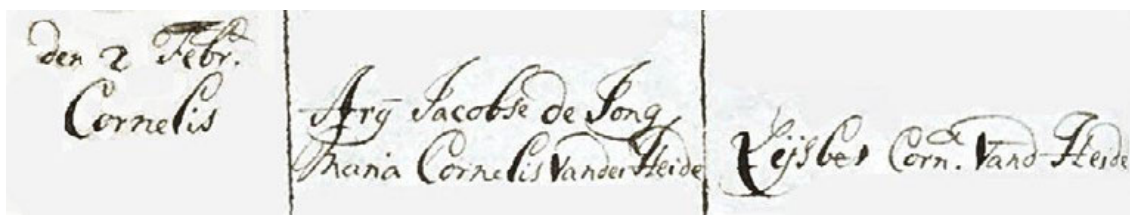 den 2 Febr.
Cornelis
Arÿ Jacobse de Jong
Maria Cornelis Vander Heide
Lijsbet Corn. Vand Heide